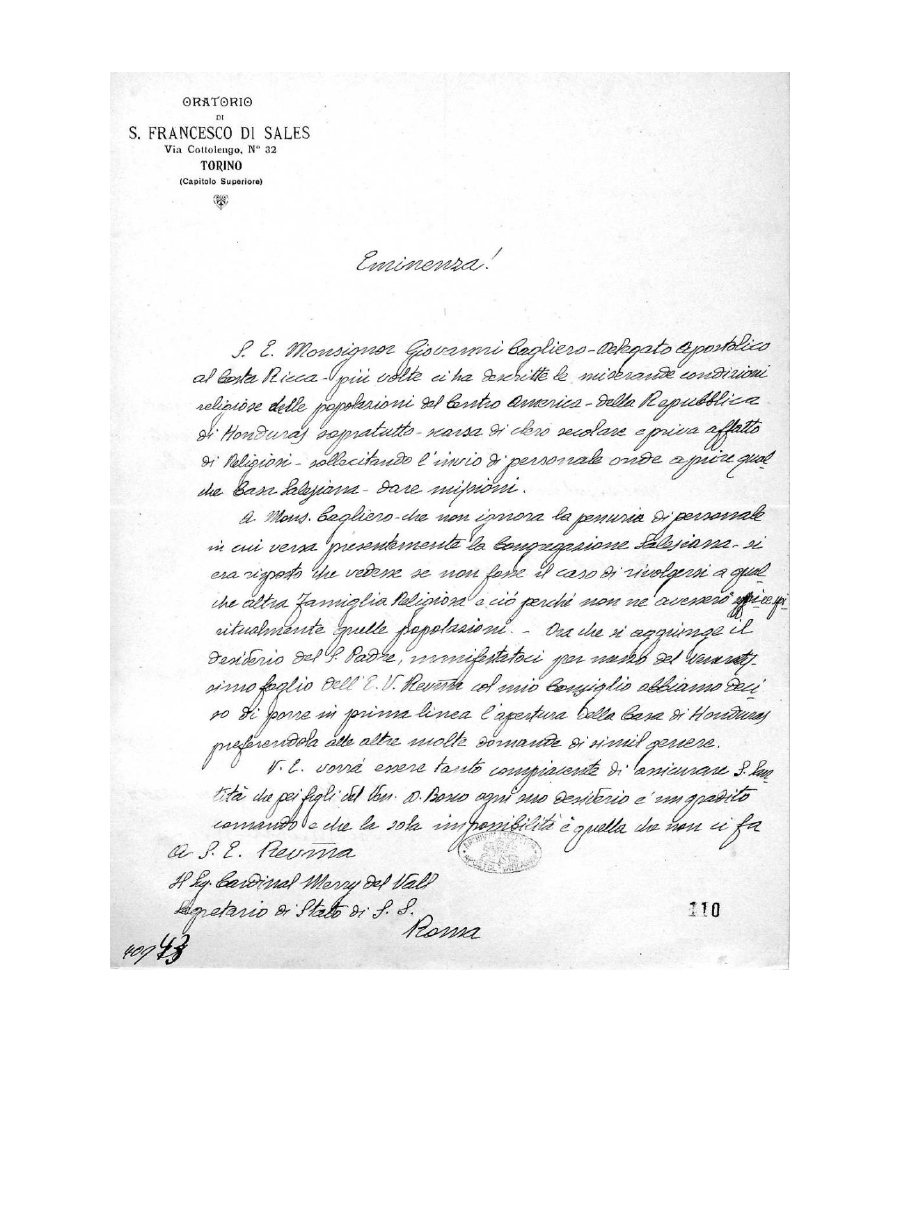 ORATORIO
DI
S. FRANCESCO DI SALES
Via Cottolengo, N° 32
TORINO
(Capitolo Superiore)
Eminenza!
S. E. Monsignor Giovanni Cagliero - Delegato Apostolico
al Costa Ricca - più volte ci ha descritte le miserande condizioni
religiose delle popolazioni del Centro America - della Repubblica
di Honduras sopratutto - scarsa di clero secolare e priva affatto
di Religiosi - sollecitando l'invio di personale onde aprire qual-
che Casa Salesiana - dare missioni.
A Mons. Cagliero - che non ignora la penuria di personale
in cui versa presentemente la Congregazione Salesiana - si
era risposto che vedesse se non fosse il caso di rivolgersi a qual
che altra Famiglia Religiosa e ciò perché non ne avessero spi-
ritualmente quelle popolazioni. - Ora che si aggiunge il
desiderio del S. Padre, manifestatoci per mezzo del veneratis-
simo foglio dell'E. V. Revma col mio Consiglio abbiamo deci
so di porre in prima linea l'apertura della Casa di Honduras
preferendola alle altre molte domande di simil genere.
V. E. vorrà essere tanto compiacente di assicurare S. San-
tità che pei figli del Ven. D. Bosco ogni suo desiderio è un gradito
comando e che la sola impossibilità è quella che non ci fa
A S. E. Revma
Il Sig. Cardinal Merry del Vall
Segretario di Stato di S. S.
Roma
110
43